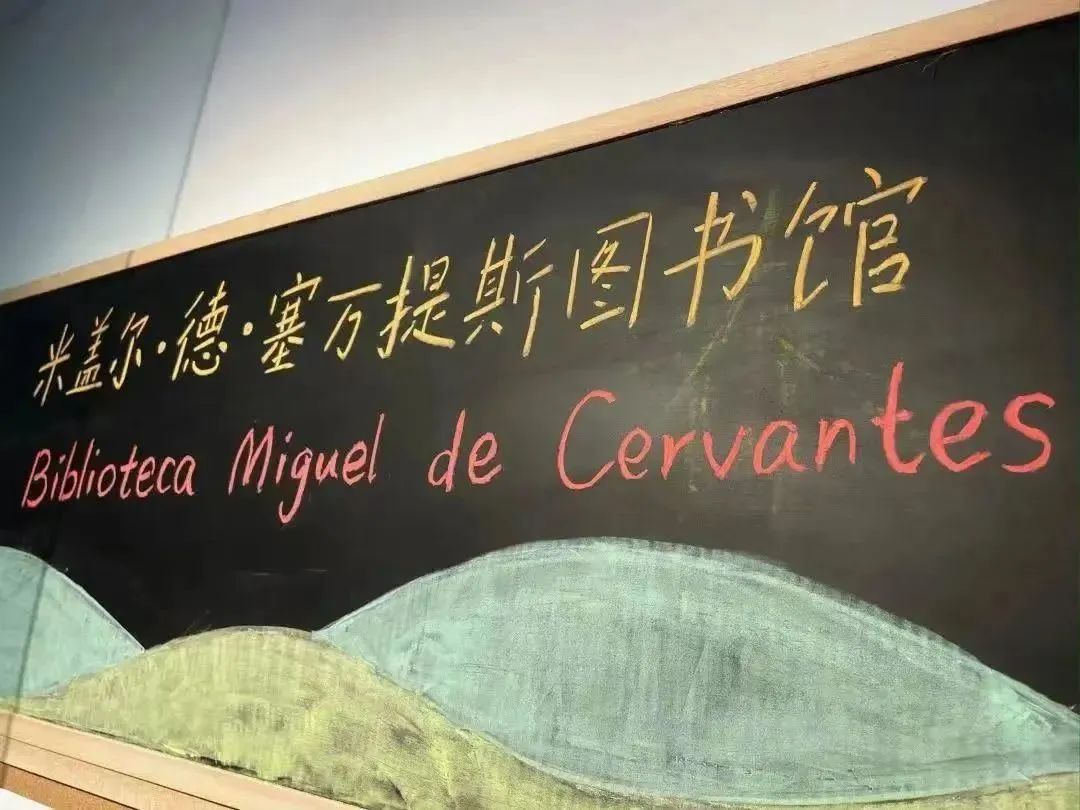 米盖尔·德·塞万提斯图书馆
Biblioteca Miguel de Cervantes